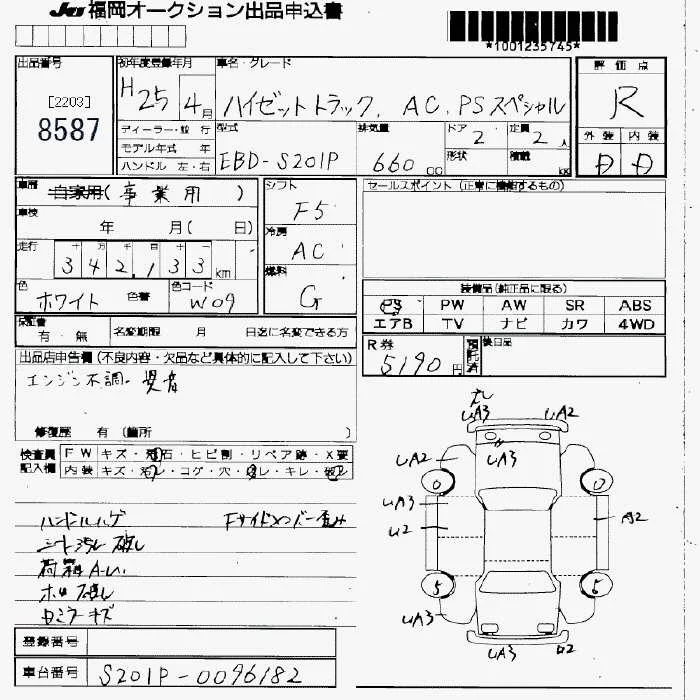 JU福岡オークション出品申込書
*1001235745*
出品番号
[2203]
8587
初年度登録年月
H25 4月
車名・グレード
ハイゼットトラック. AC. PSスペシャル
評価点
R
外装 内装
D D
ディーラー・並行
モデル年式 年
ハンドル 左・右
型式
EBD-S201P
排気量
660 CC
ドア 2
定員 2人
形状
積載
車歴
自家用(事業用)
車検
年 月( 日)
走行
十 万 千 百 十
342,133km
色
ホワイト 色替
色コード
W09
シフト
F5
冷房
AC
燃料
G
セールスポイント(正常に機能するもの)
装備品(純正品に限る)
PS PW AW SR ABS
エアB TV ナビ カワ 4WD
保証書
有・無
名変期限 月 日迄に名変できる方
R券
5190円
預託済
後日品
出品店申告欄(不良内容・欠品など具体的に記入して下さい)
エンジン不調. 異音
修復歴 有(箇所 )
検査員記入欄
FW キズ・飛石・ヒビ割・リペア跡・X要
内装 キズ・汚レ・コゲ・穴・スレ・キレ・破レ
ハンドルハゲ Fサイドメンバー歪み
シート汚レ 破レ
荷箱A-U.
ホロ 破レ
ミラーキズ
UA3 UA2
UA2 UA3
0 0
UA3
U2 A2
5 5
UA3
UA3
登録番号
車台番号
S201P-0096182